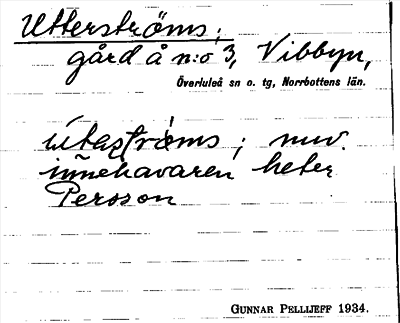 Utterströms;
gård å n:o 3, Vibbyn,
Överluleå sn o. tg, Norrbottens län.
; nuv.
innehavaren heter
Persson
GUNNAR PELLIJEFF 1934.